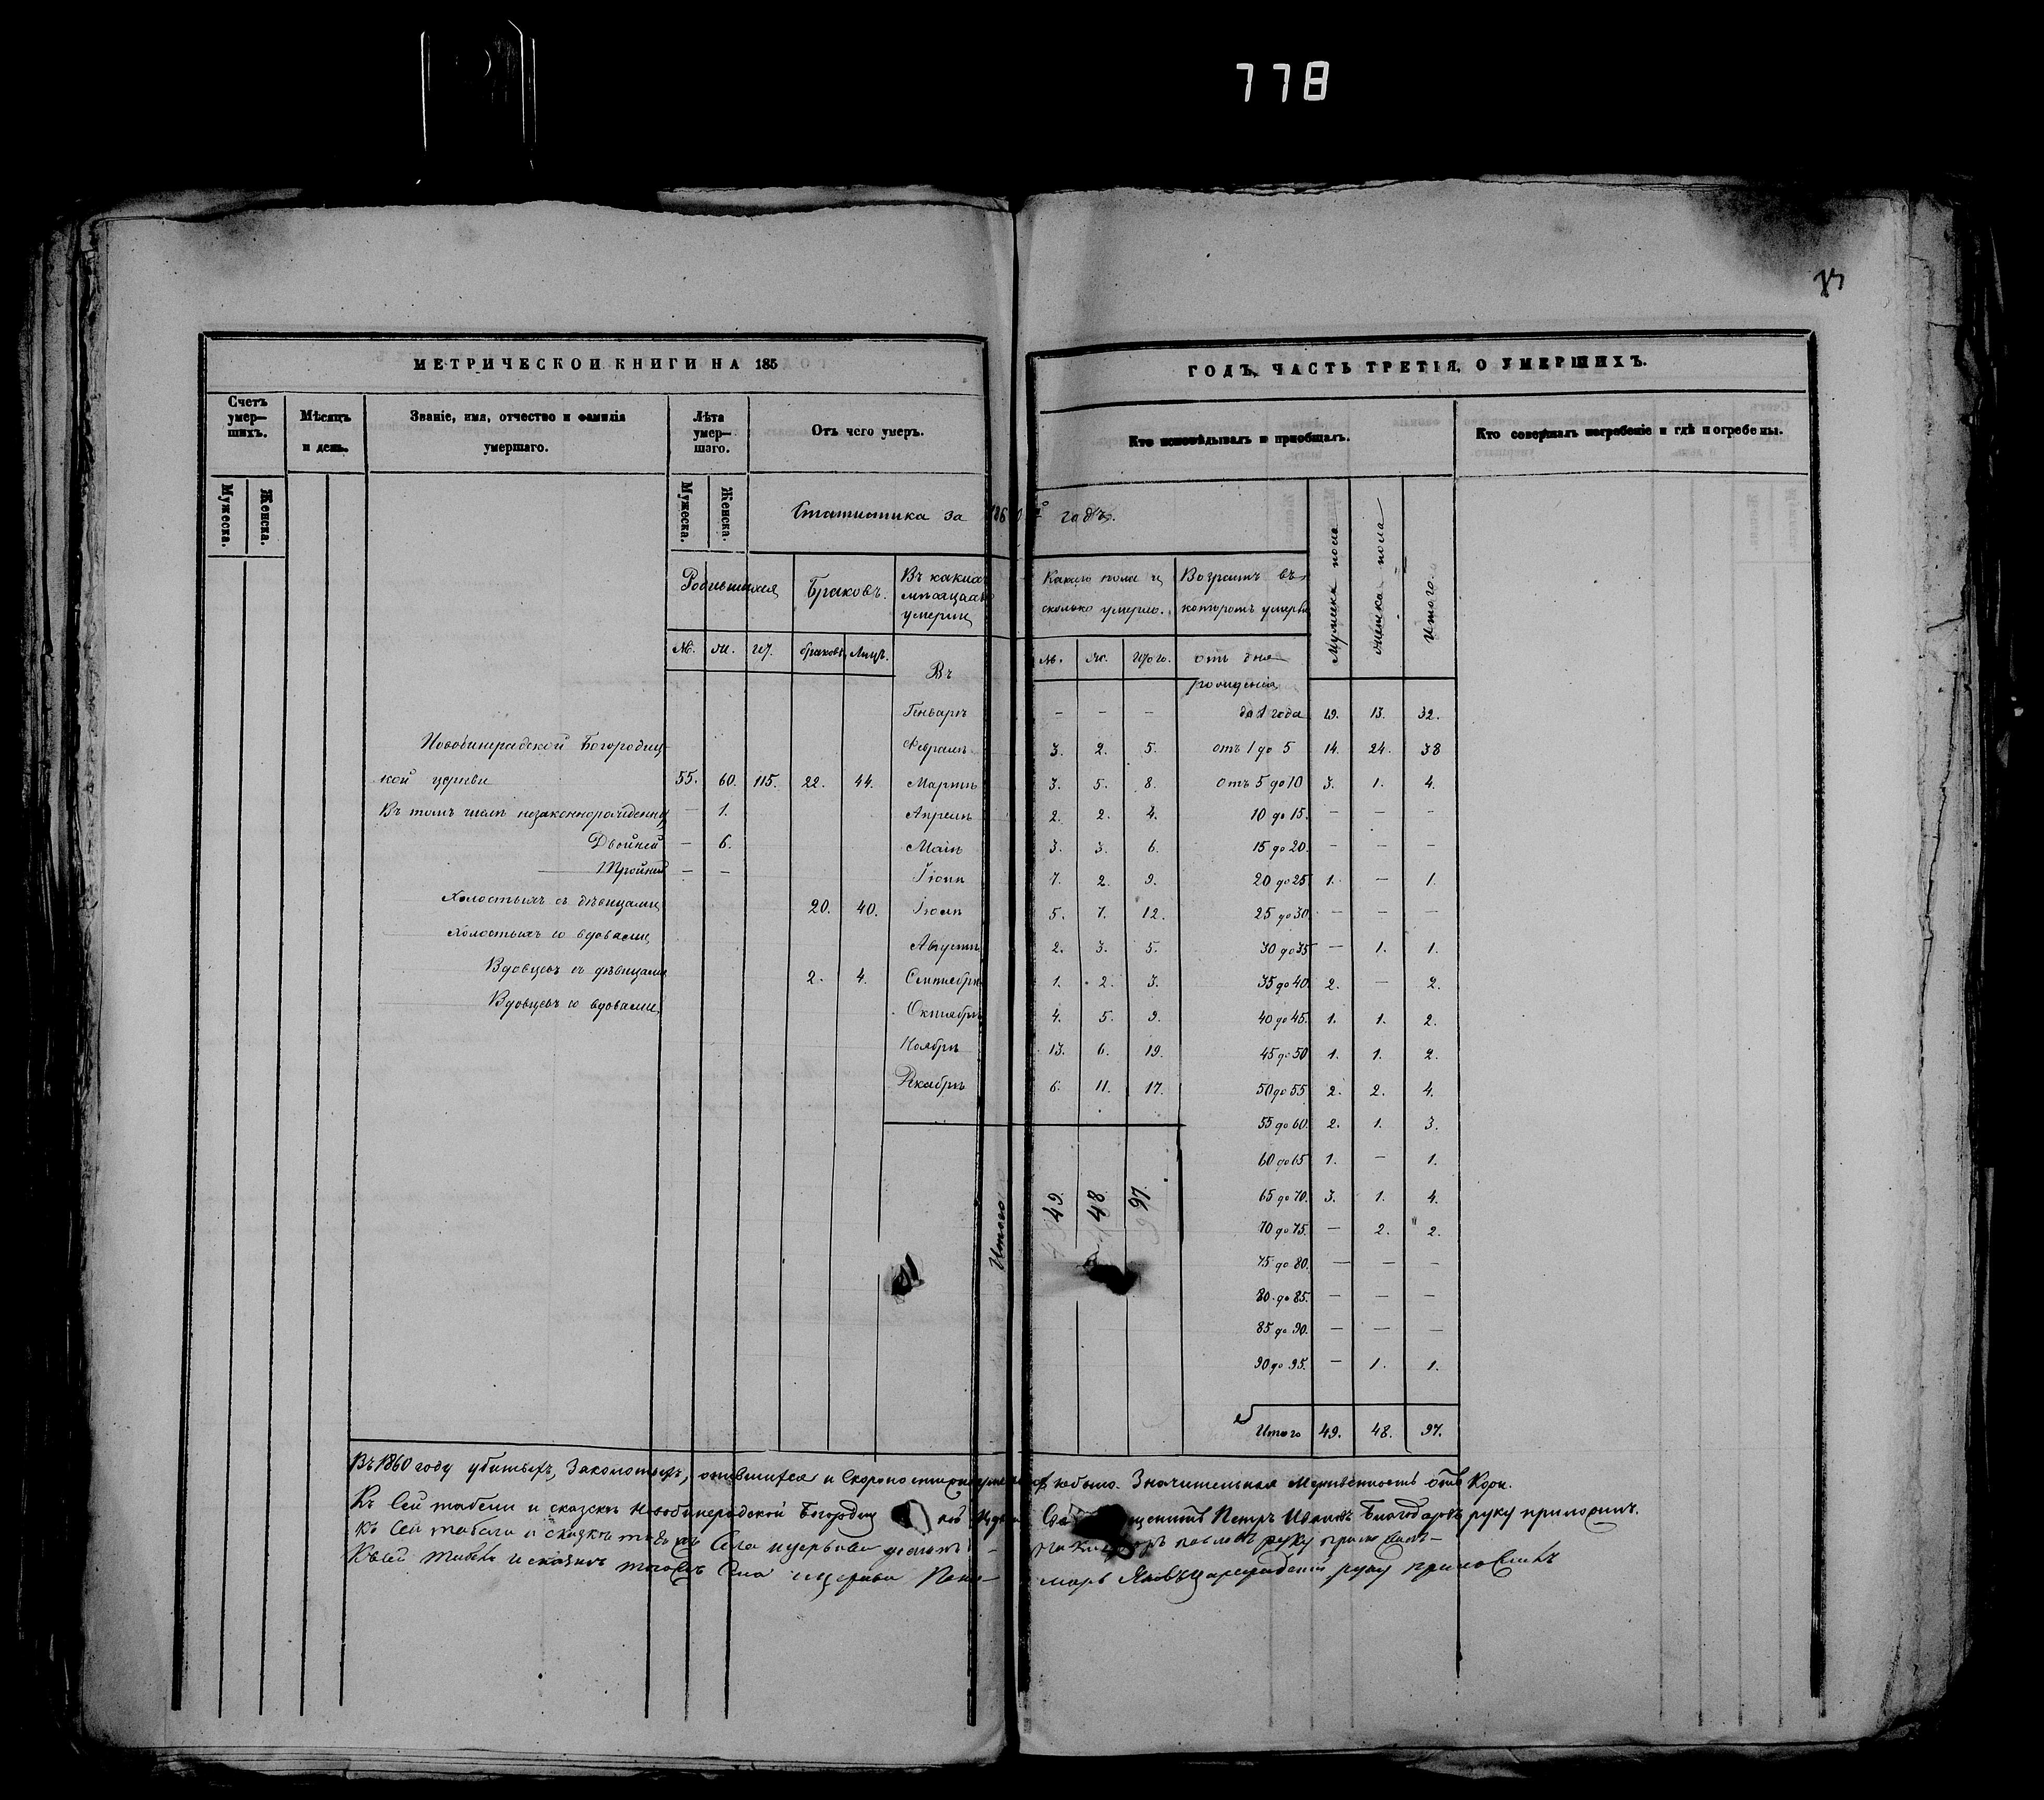 778
МЕТРИЧЕСКОЙ КНИГИ НА 185
ГОДЪ, ЧАСТЬ ТРЕТІЯ, О УМЕРШИХЪ.
Счетъ умер— шихъ.
Мѣсяцъ и день.
Званіе, имя, отчество и фамилія умершаго.
Лѣта умер— шаго.
Отъ чего умеръ.
Кто исповѣдывалъ и пріобщалъ.
Кто совершалъ погребеніе и гдѣ погребены.
Мужеска. Женска.
Мужеска. Женска.
Статистика за 1860 й годъ.
Родившихся
Браковъ.
Въ какихъ мѣсяцахъ умерли
Какого пола и сколько умерло.
Возрастъ въ которомъ умерли
Мужеска пола
Женска пола
Итого.
М. Ж. И. браковъ. Лицъ. Въ
М. Ж. Итого. отъ дня рожденія
Генварѣ — — — до 1 года 19. 13. 32.
Новобиградской Богородиц- Февралѣ 3. 2. 5. отъ 1 до 5 14. 24. 38
кой церкви 55. 60. 115. 22. 44. Мартѣ 3. 5. 8. отъ 5 до 10 3. 1. 4.
Въ томъ числѣ незаконнорожденных — 1. Апрелѣ 2. 2. 4. 10 до 15. — — —
Двойней — 6. Маіѣ 3. 3. 6. 15 до 20. — — —
Тройней — — Іюнѣ 7. 2. 9. 20 до 25 1. — 1.
Холостыхъ съ дѣвицами 20. 40. Іюлѣ 5. 7. 12. 25 до 30 — — —
Холостыхъ со вдовами Августѣ 2. 3. 5. 30 до 35 — 1. 1.
Вдовцевъ съ дѣвицами 2. 4. Сентябрѣ 1. 2. 3. 35 до 40. 2. — 2.
Вдовцевъ со вдовами Октябрѣ 4. 5. 9. 40 до 45. 1. 1. 2.
Ноябрѣ 13. 6. 19. 45 до 50 1. 1. 2.
Декабрѣ 6. 11. 17. 50 до 55 2. 2. 4.
55 до 60. 2. 1. 3.
60 до 65 1. — 1.
Итого 49. 48. 97. 65 до 70. 3. 1. 4.
70 до 75. — 2. 2.
75 до 80. — — —
80 до 85. — — —
85 до 90. — — —
90 до 95. — 1. 1.
Итого 49. 48. 97.
Въ 1860 году убитыхъ, и Скоропостижно небыло. Значительная Мертвенность отъ Кори.
Къ Сей табели и сказкѣ Богородиц Петръ Благодаровъ руку приложилъ.
Къ Сей табели и сказкѣ Села и церкви руку приложилъ
Къ сей табели и сказкѣ Села и церкви Поно- марь руку приложилъ